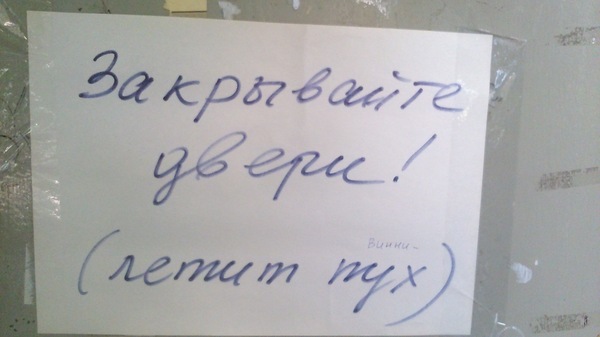 Закрывайте
двери!
Винни-
(летит пух)